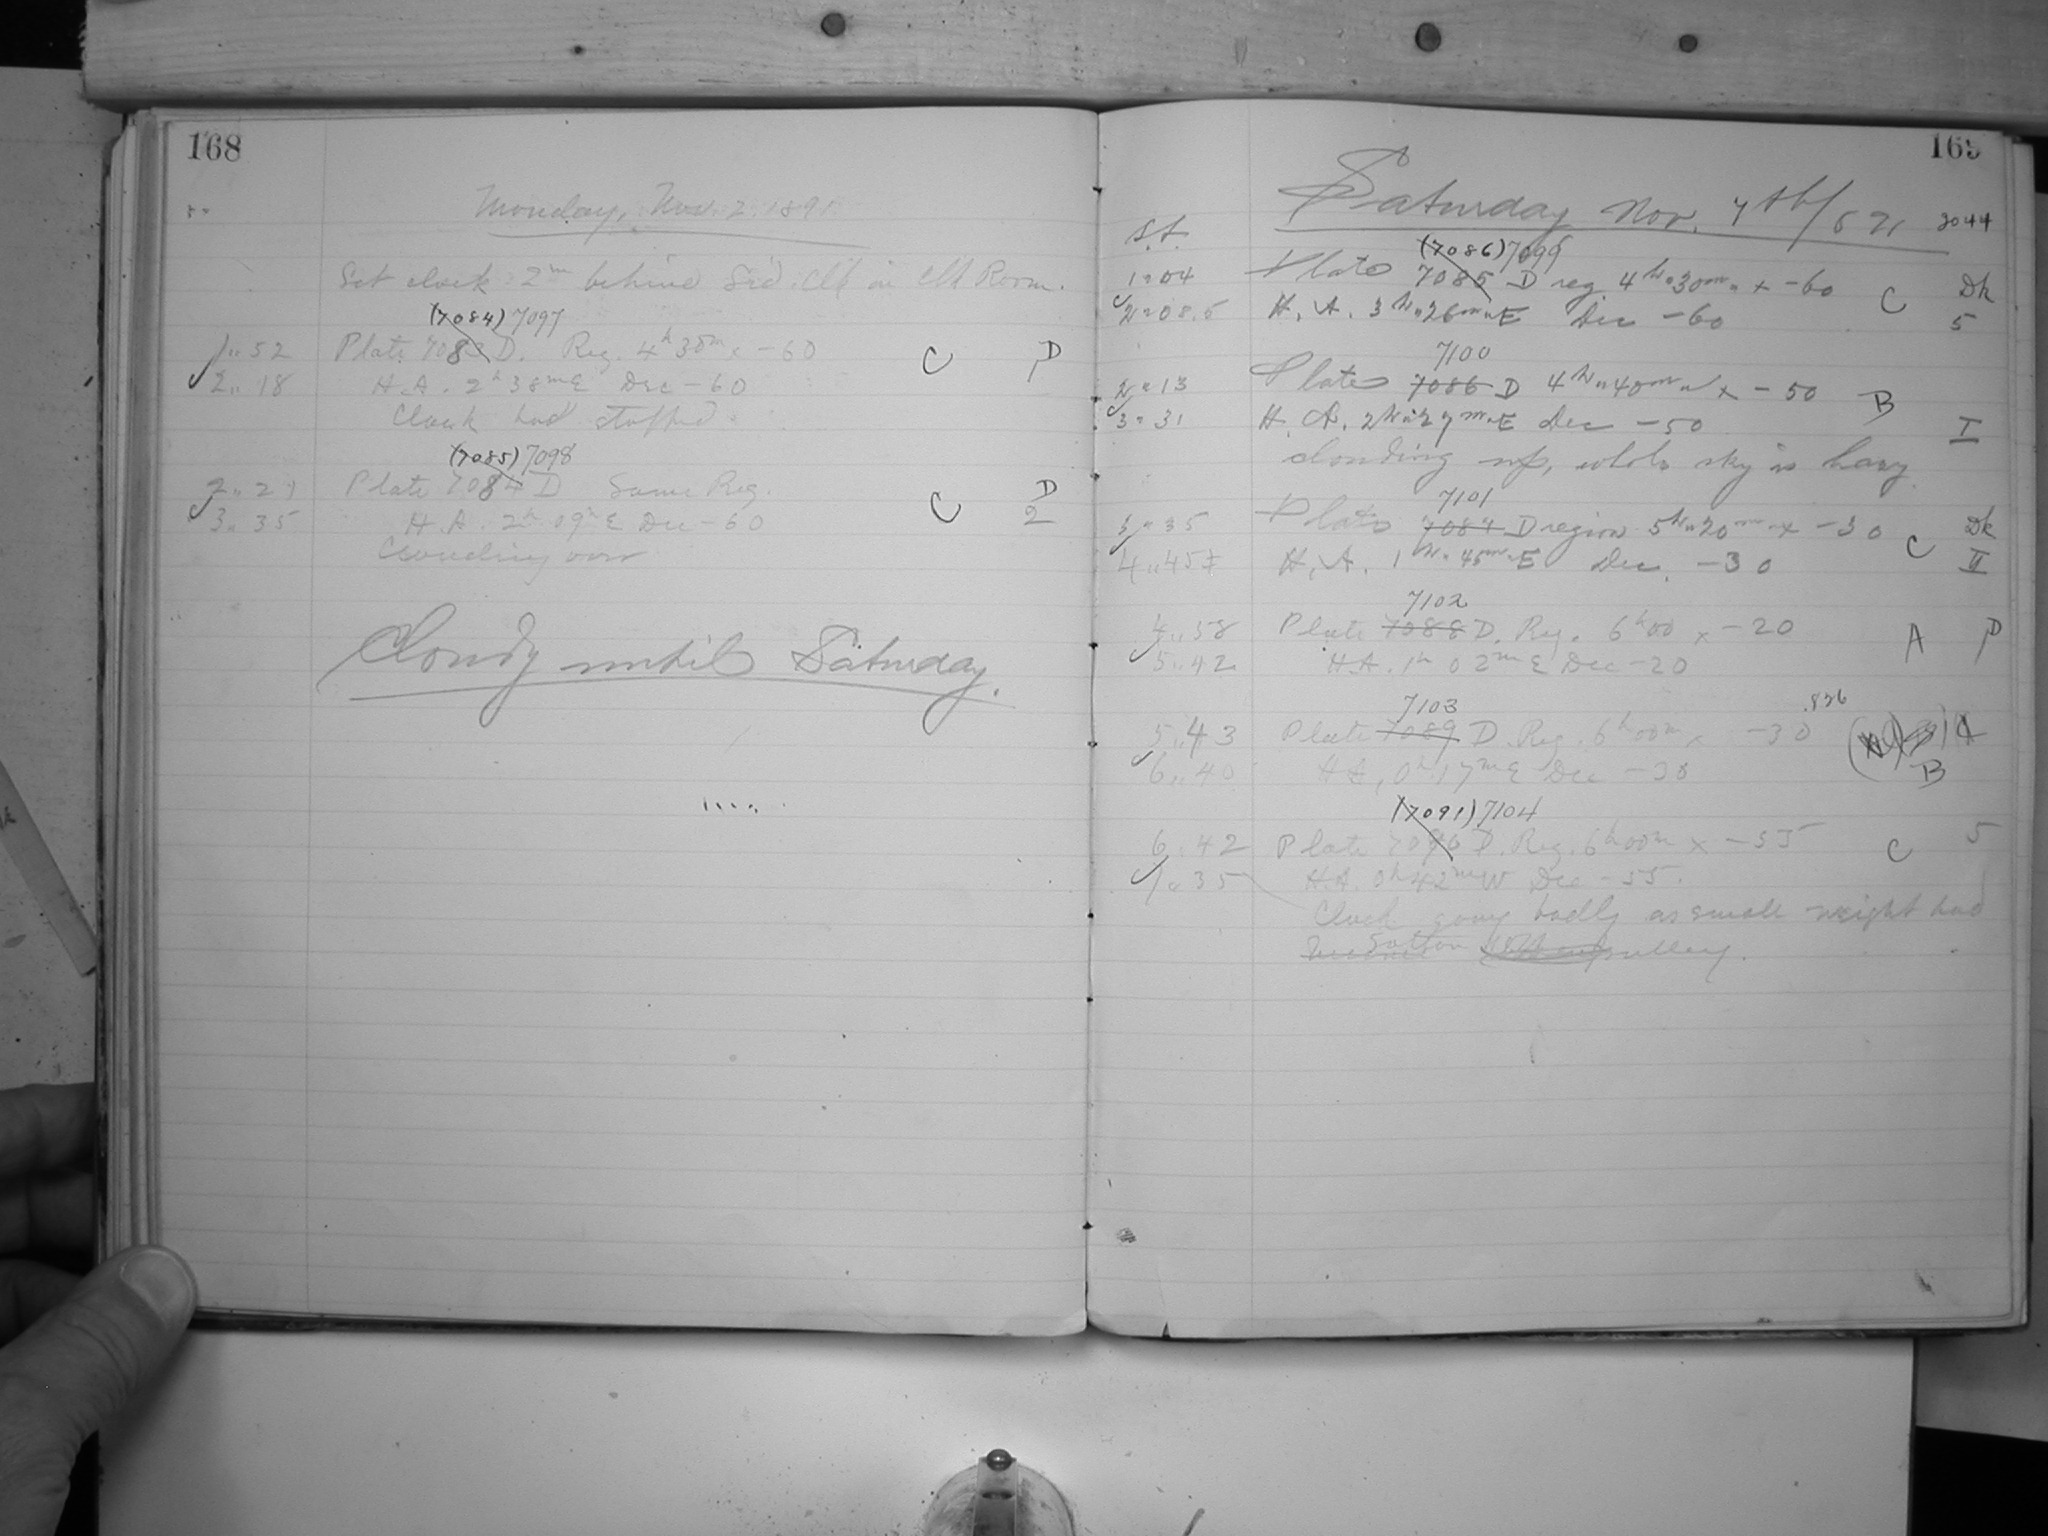 168
Monday, Nov. 2. 1891
Set clock 2m behind Sid. Clk in Clk Room.
(7084) 7097
1"52 Plate 7083 D. Reg. 4h 30m x -60 C D
2"18 H.A. 2h 38m E Dec -60
Clock had stopped.
(7085) 7098
Plate 7084 D Same Reg. C D
3"35 H.A. 2h 09m E Dec -60 2
Clouding over
Cloudy until Saturday.
169
Saturday Nov. 7th/891 2044
S.t.
(7086) 7099
1"04 Plate 7085 D reg 4h"30m" x -60 C Dk
2"08.5 H.A. 3h"26m"E Dec -60 5
7100
2"13 Plate 7086 D 4h"40m" x -50 B
3"31 H.A. 2h"27m"E Dec -50 I
clouding up, whole sky is hazy
7101
3"35 Plate 7087 D region 5h"20m" x -30 C Dk
4"45 H.A. 1h"45m"E Dec. -30 II
7102
4"58 Plate 7088 D. Reg. 6h00 x -20 A D
5"42 H.A. 1h 02m E Dec -20
7103 .826
5"43 Plate 7089 D. Reg. 6h00m x -30
6"40 H.A. 0h 17m E Dec -30 B
(7091) 7104
6"42 Plate 7090 D. Reg. 6h00m x -55 C 5
7"35 H.A. 0h 42m W Dec -55.
Clock going badly as small weight had
pulley.